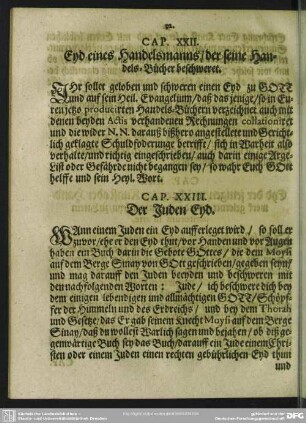 52.
CAP. XXII.
Eyd eines Handelsmanns/ der seine Han-
dels-Bücher beschweret.
IHr sollet geloben und schweren einen Eyd zu GOTT
und auf sein Heil. Evangelium/ daß das jenige/ so in Eu-
ren jetzo producirten Handels-Büchern verzeichnet auch mit
denen beyden Actis verhandenen Rechnungen collationiret
und die wider N.N. darauß bißhero angestellete und Gericht-
lich geklagte Schuldforderunge betrifft/ sich in Warheit also
verhalte/ und richtig eingeschrieben/ auch darin einige Arge-
List oder Gefährde nicht begangen sey/ so wahr Euch GOtt
helffe und sein Heyl. Wort.
CAP. XXIII.
Der Juden Eyd.
WAnn einem Juden ein Eyd aufferleget wird/ so soll er
zuvor/ ehe er den Eyd thut/ vor Handen und vor Augen
haben ein Buch darin die Gebote GOttes/ die dem Moysi
auf dem Berge Sinay von GOtt geschrieben/ gegeben seyn/
und mag darauff den Juden beeyden und beschweren mit
den nachfolgenden Worten: Jude/ ich beschwere dich bey
dem einigen lebendigen und allmächtigen GOTT/ Schöpf-
fer der Himmeln und des Erdreichs/ und bey dem Thorah
und Gesetze/ das Er gab seinem Knecht Moysi auf dem Berge
Sinay/ daß du wollest Warlich sagen und bejahen/ ob diß ge-
genwärtige Buch sey das Buch/ darauff ein Jude einem Chri-
sten oder einem Juden einen rechten gebührlichen Eyd thun
und